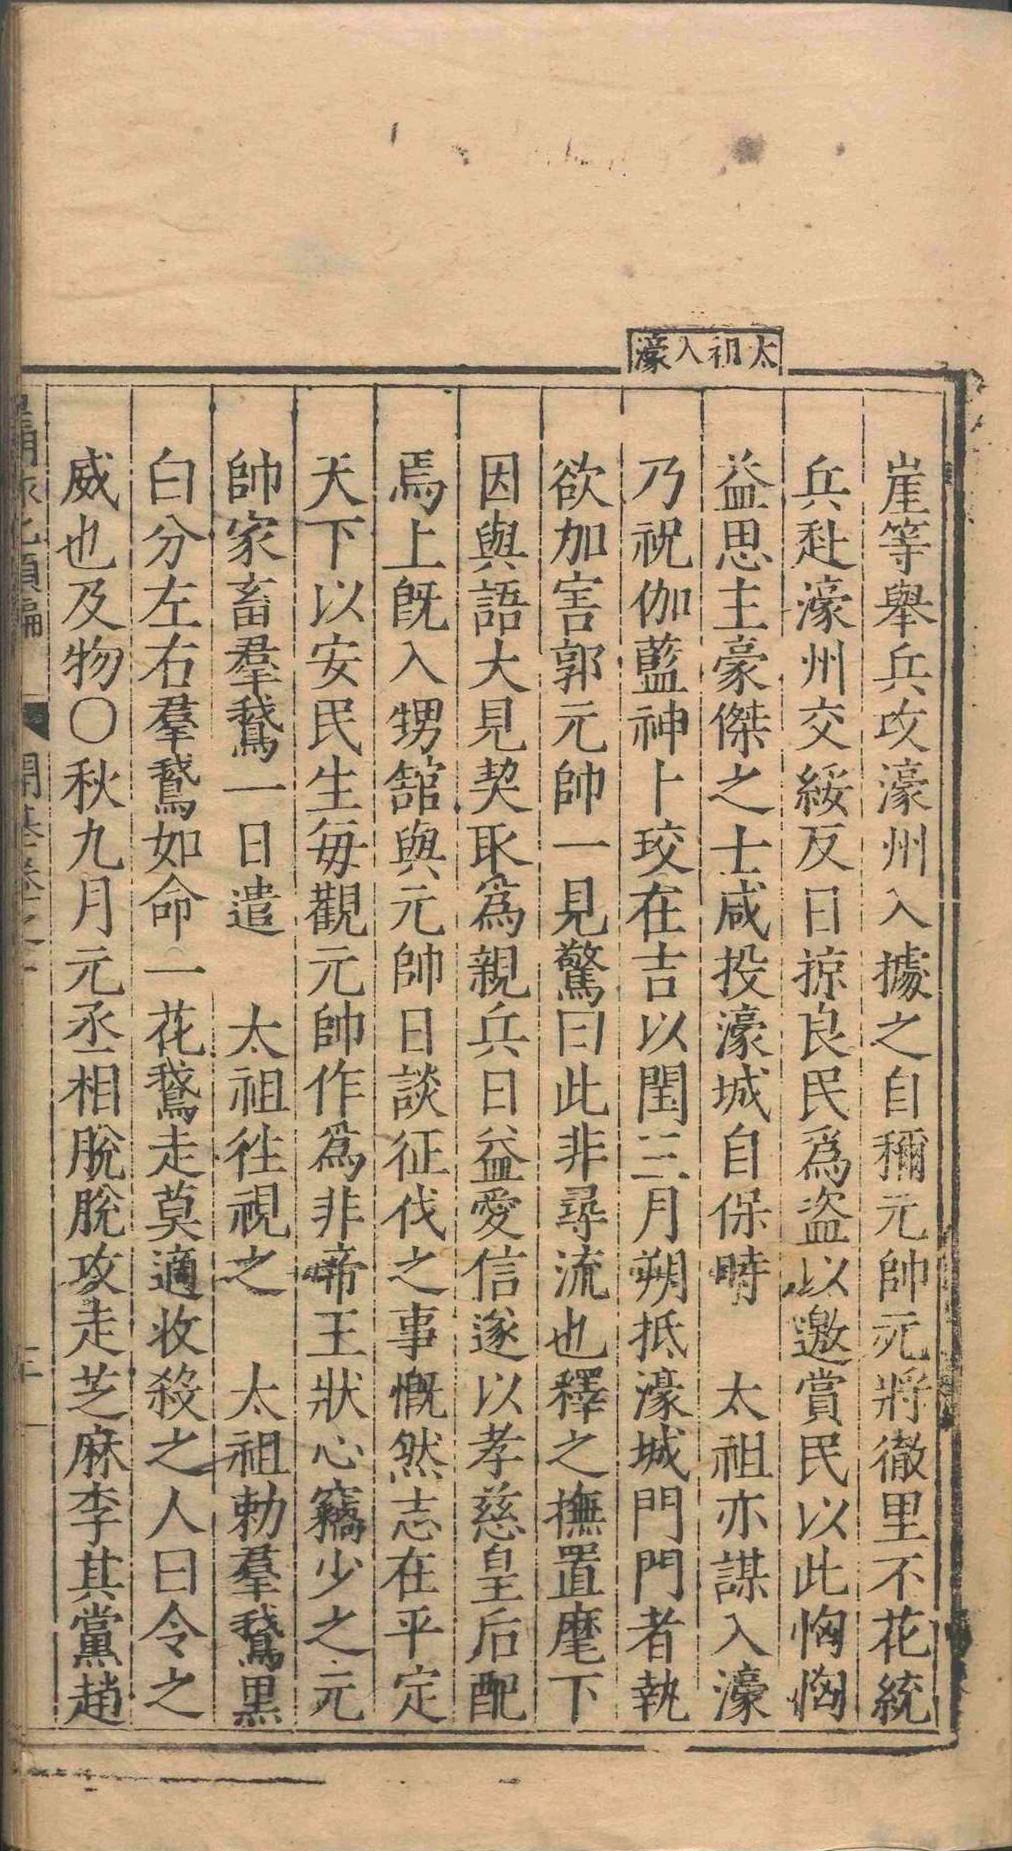 太祖入濠
崖等舉兵攻濠州入據之自稱元帥元將徹里不花統
兵赴濠州交綏反日掠良民爲盗以邀賞民以此恟恟
益思主豪傑之士咸投濠城自保時　太祖亦謀入濠
乃祝伽藍神卜珓在吉以閏三月朔抵濠城門門者執
欲加害郭元帥一見驚曰此非尋流也釋之撫置麾下
因與語大見契取爲親兵日益愛信遂以孝慈皇后配
焉上旣入甥舘與元帥日談征伐之事慨然志在平定
天下以安民生每觀元帥作爲非帝王狀心竊少之元
帥家畜羣鵞一日遣　太祖徃視之　太祖勅羣鵞黒
白分左右羣鵞如命一花鵞走莫適收殺之人曰令之
威也及物〇秋九月元丞相脫脫攻走芝麻李其黨趙